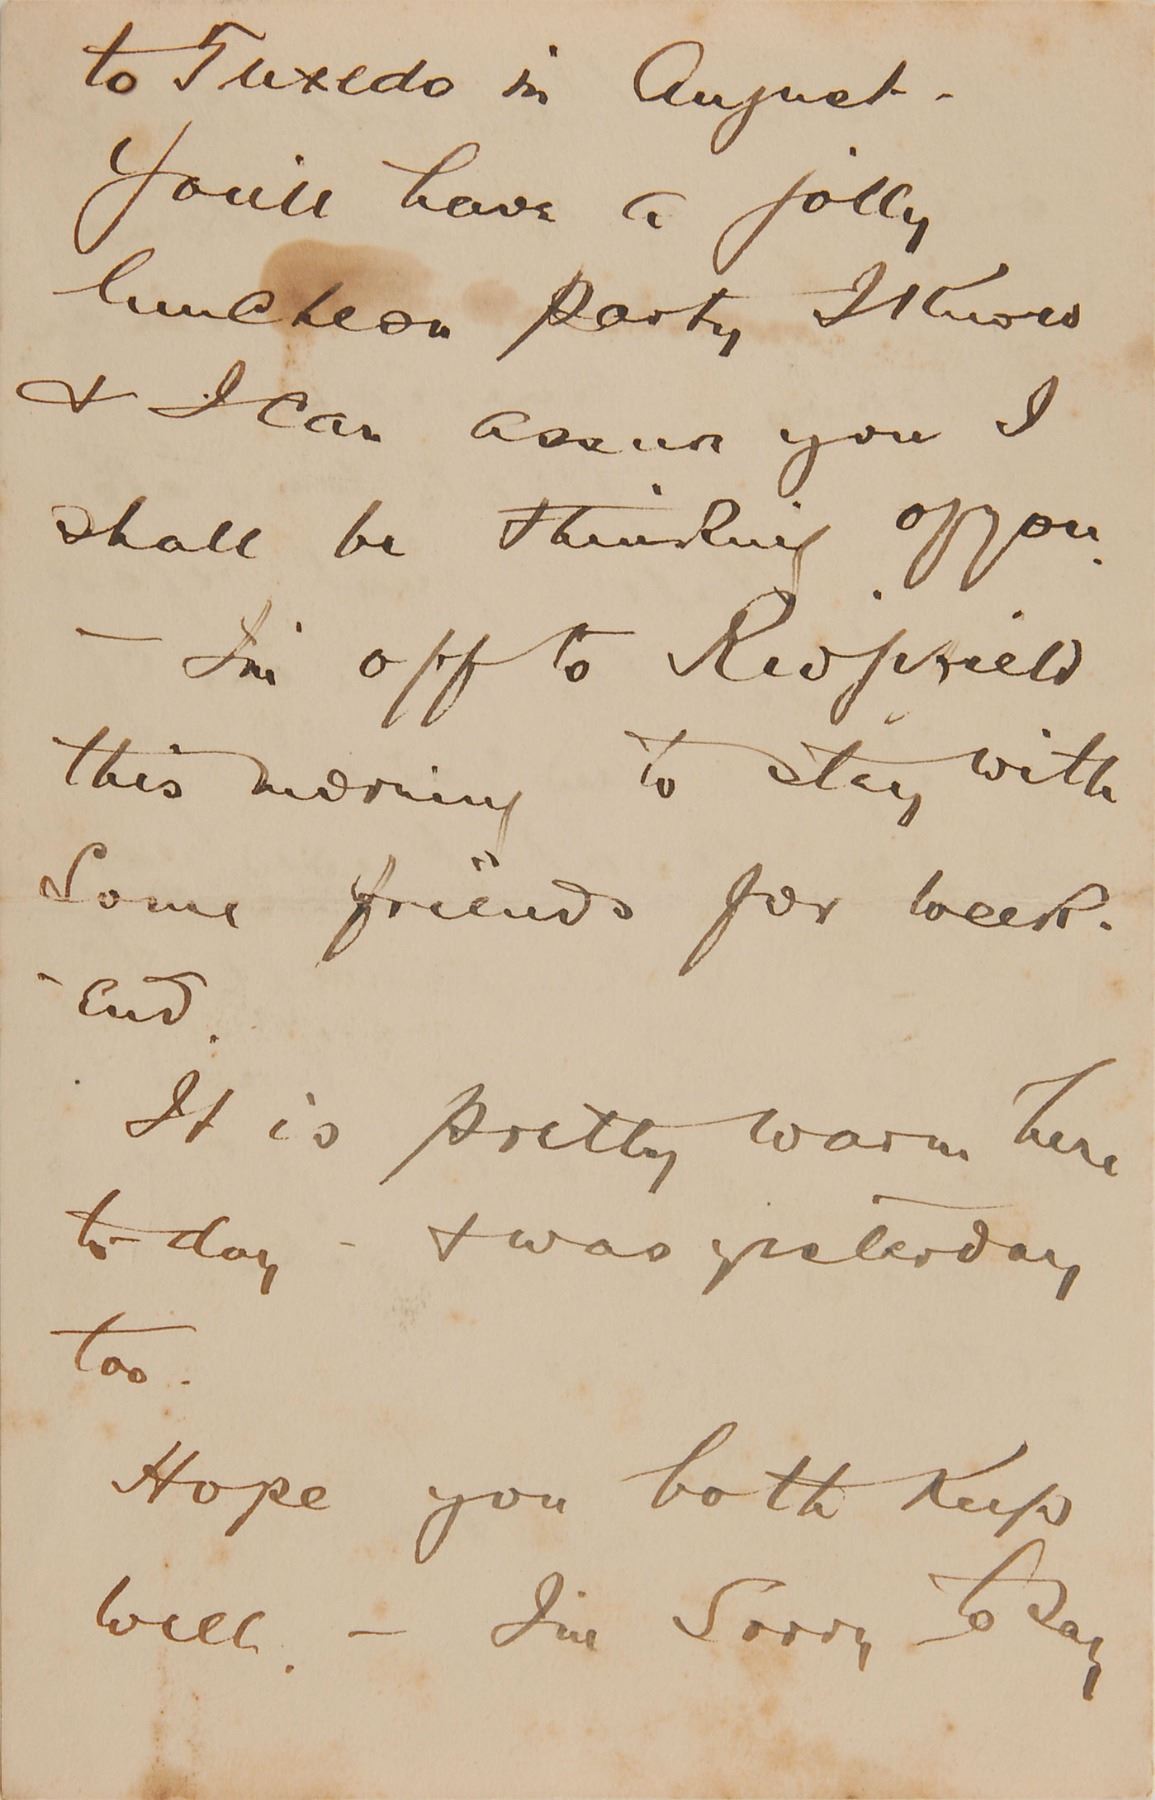 to Tuxedo in August -
You'll have a jolly
luncheon party I know
& I can assure you I
shall be thinking of you.
- I'm off to Ridgfield
this morning to stay with
Some friends for week-
-end.
It is pretty warm here
to-day - & was yesterday
too.
Hope you both keep
well. - I'm Sorry to say